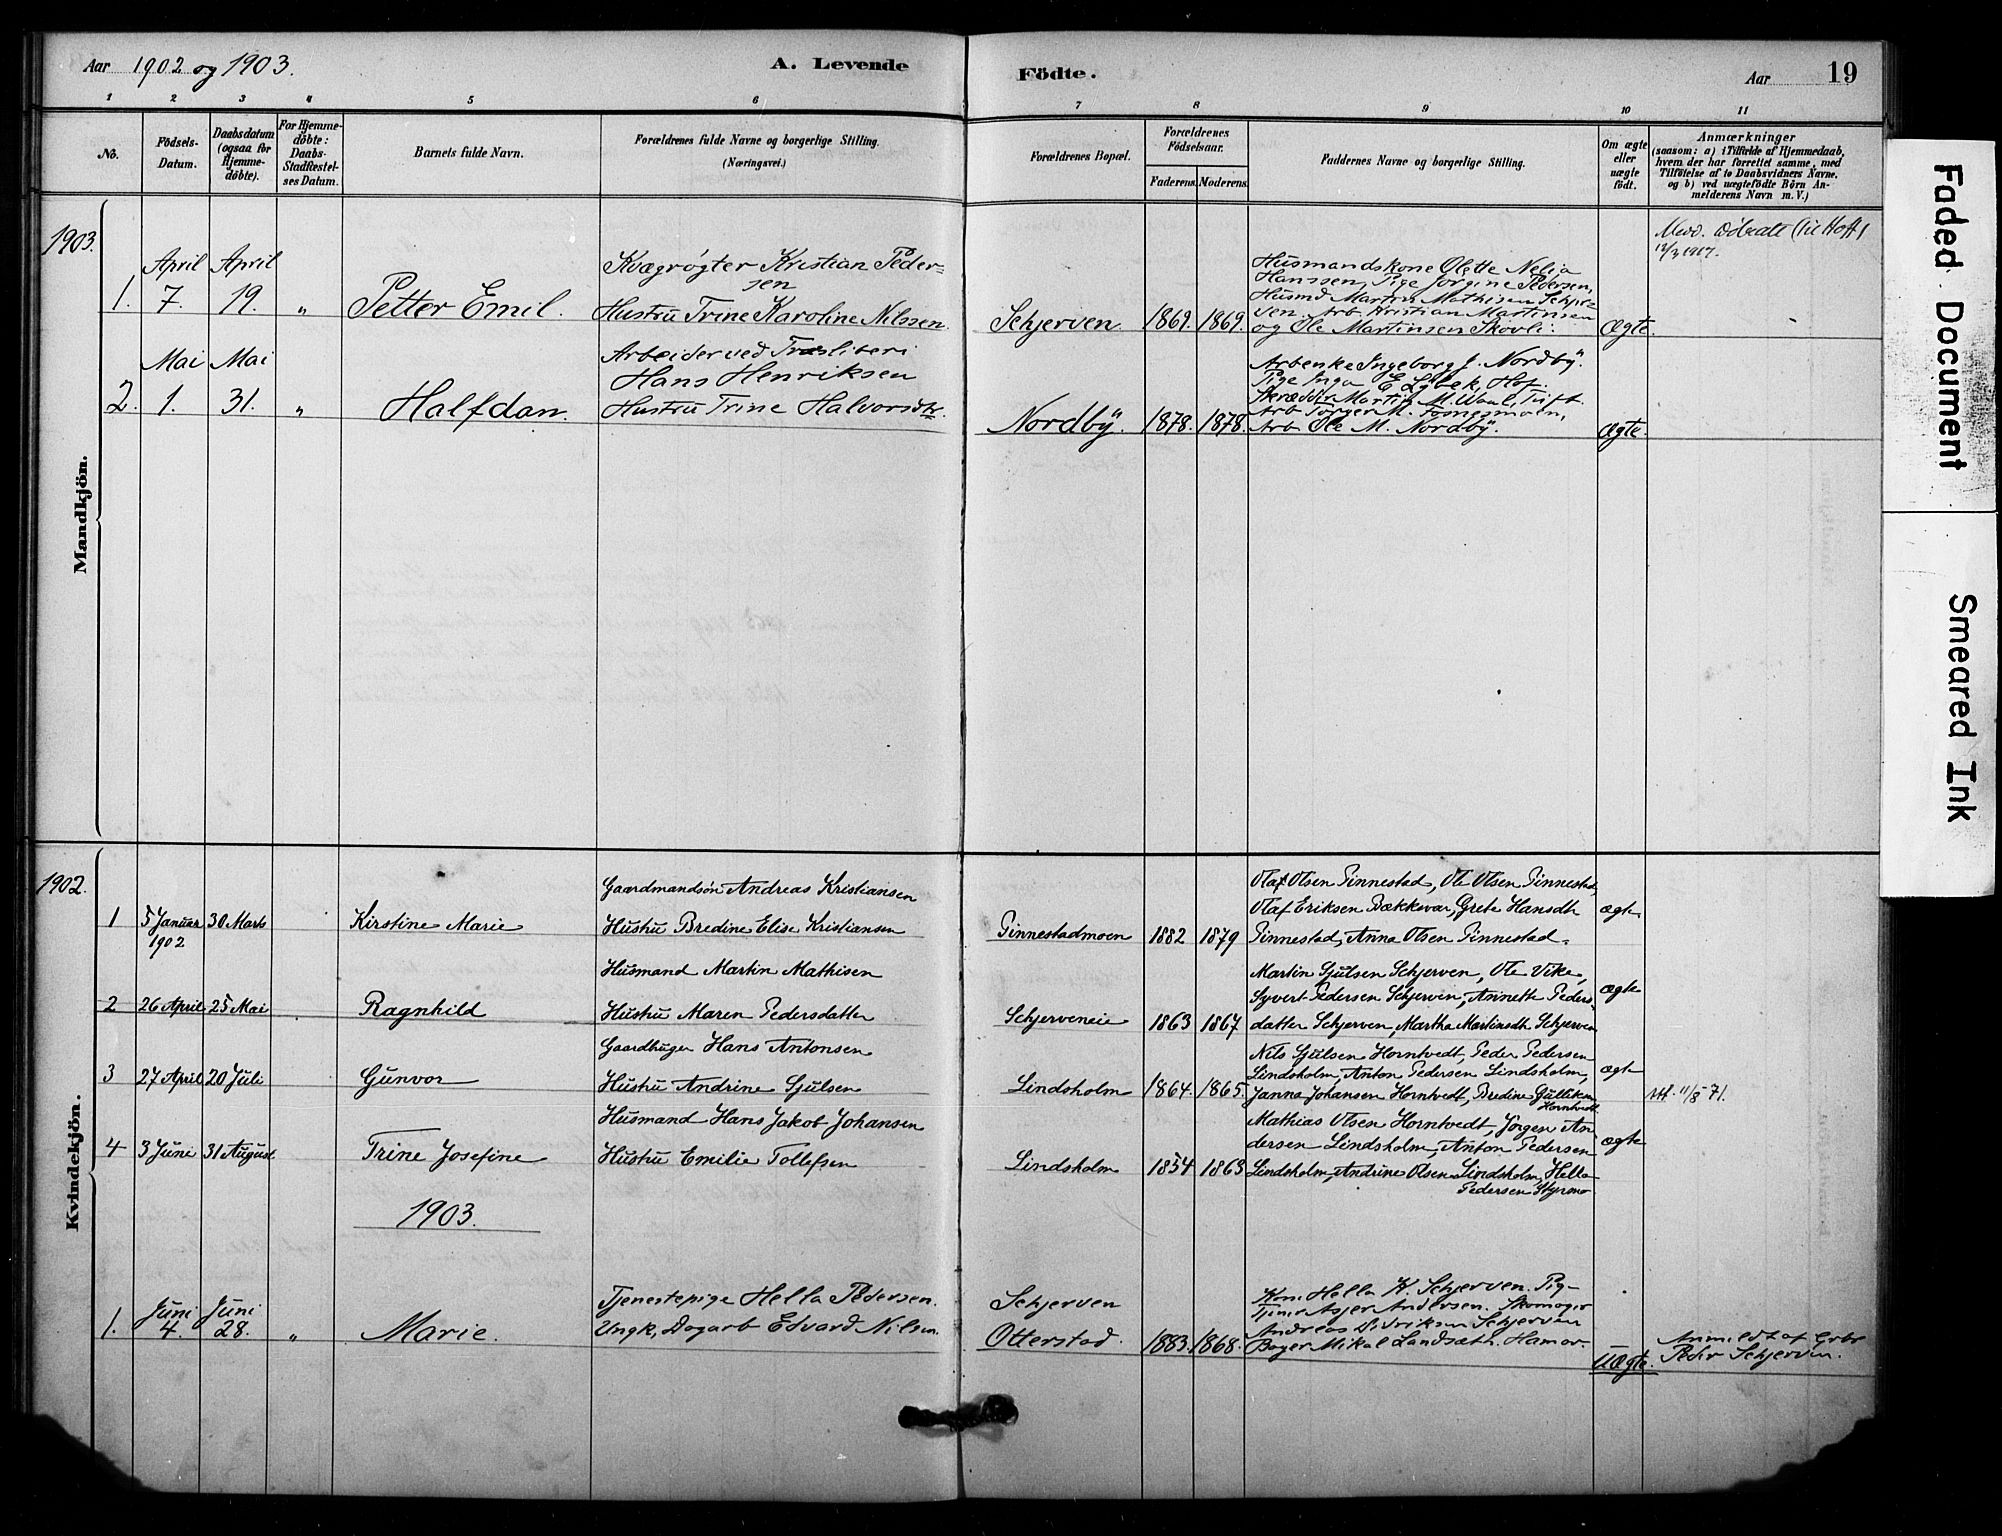 Aar 1902 og 1903.
A. Levende
Födte.
Aar
19
1
2
3
4
5
6
7
8
9
10
11
No.
Födsels-
Datum.
Daabsdatum
(ogsaa for
Hjemme-
döbte).
For Hjemme-
döbte:
Daabs-
Stadfæstel-
ses Datum.
Barnets fulde Navn.
Forældrenes fulde Navne og borgerlige Stilling.
(Næringsvei.)
Forældrenes Bopæl.
Forældrenes
Födselsaar.
Faderens.
Moderens.
Faddernes Navne og borgerlige Stilling.
Om ægte
eller
uægte
födt.
Anmærkninger
(saasom: a) i Tilfælde af Hjemmedaab,
hvem der har forrettet samme, med
Tilföielse af to Daabsvidners Navne,
og b) ved uægtefödte Börn An-
melderens Navn m. V.)
Mandkjön.
1903.
1.
April
7.
April
19.
"
Petter Emil.
Kvægrøgter Kristian Peder-
sen
Hustru Trine Karoline Nilssen.
Schjerven.
1869.
1869.
Husmandskone Olette Nelia
Hanssen, Pige Jørgine Pedersen,
Husmd Martin Mathisen Schjer-
ven. Arb. Kristian Martinsen
og Ole Martinsen Skovli.
Ægte.
(til Hoff)
12/3 1917.
2.
Mai
1.
Mai
31.
"
Halfdan.
Arbeider ved Træsliberi
Hans Henriksen
Hustru Trine Halvorsdtr.
Nordby.
1878.
1878.
Arbenke Ingeborg J. Nordby.
Pige Inga E. Lybek, Hof.
Skrædder Martin M. Tuft.
Arb Torger M. Fossesmoen,
Arb Ole M. Nordby.
ægte.
Kvindekjön.
1902.
1
5 Januar
1902
30 Marts
Kirstine Marie
Gaardmandsøn Andreas Kristiansen
Hustru Bredine Elise Kristiansen
Pinnestadmoen
1882
1879
Olaf Olsen Pinnestad, Ole Olsen Pinnestad,
Olaf Eriksen Bækkevar, Grete Hansdtr
Pinnestad, Anna Olsen Pinnestad.
ægte
2
26 April
25 Mai
Ragnhild
Husmand Martin Mathisen
Hustru Maren Pedersdatter
Schjerveneie
1863
1867
Martin Gjulsen Schjerven, Ole Vike,
Syvert Pedersen Schjerven, Annette Peders-
datter Schjerven, Martha Martinsdtr Schjerven
ægte
3
27 April
20 Juli
Gunvor
Gaardbruger Hans Antonsen
Hustru Andrine Gjulsen
Lindsholm
1864.
1865.
Nils Gjulsen Horntvedt, Peder Pedersen
Lindsholm, Anton Pedersen Lindsholm,
Janna Johansen Horntvedt, Bredine Gulliksen
Horntvedt
ægte
11/8 71.
4
3 Juni
31 August
Trine Josefine
Husmand Hans Jakob Johansen
Hustru Emilie Tollefsen
Lindsholm
1854
1863
Mathias Olsen Horntvedt, Jørgen An
dersen Lindsholm, Anton Pedersen
Lindsholm, Andrine Olsen Lindsholm, Hella
Pedersen Styrmo
ægte
1903.
1.
Juni
4.
Juni
28.
"
Marie.
Tjenestepige Hella Pedersen.
Ungk, Dagarb Edvard Nilsen.
Schjerven
Otterstad.
1883.
1868.
Kone Hella K. Schjerven. Pig-
Asjer Andersen. Skomager
Andreas Schjerven
Mikal Landsæth. Hamar.
Uægte.
Anmeldt af Grbr
Peder Schjerven.
Faded Document
Smeared Ink